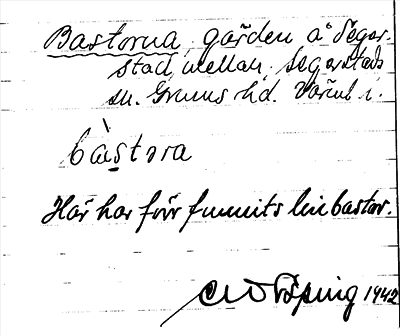 Bastorna, gården å Seger-
stad, mellan, Segerstads
sn. Grums hd. Värml. i.
bàstora
Här har förr funnits linbastor.
1942